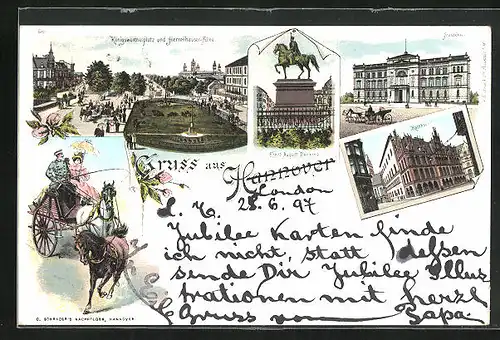 Königswortherplatz und Herrenhäuser-Allee
Ernst August Denkmal
Gruss aus Hannover
London
L. K. 25.6.97
Jubilee Karten finde
ich nicht, statt dessen
sende Dir Jubilee Illus
trationen mit herzl
Gruss vom Papa.
G. SCHRADER'S NACHFOLGER, HANNOVER.